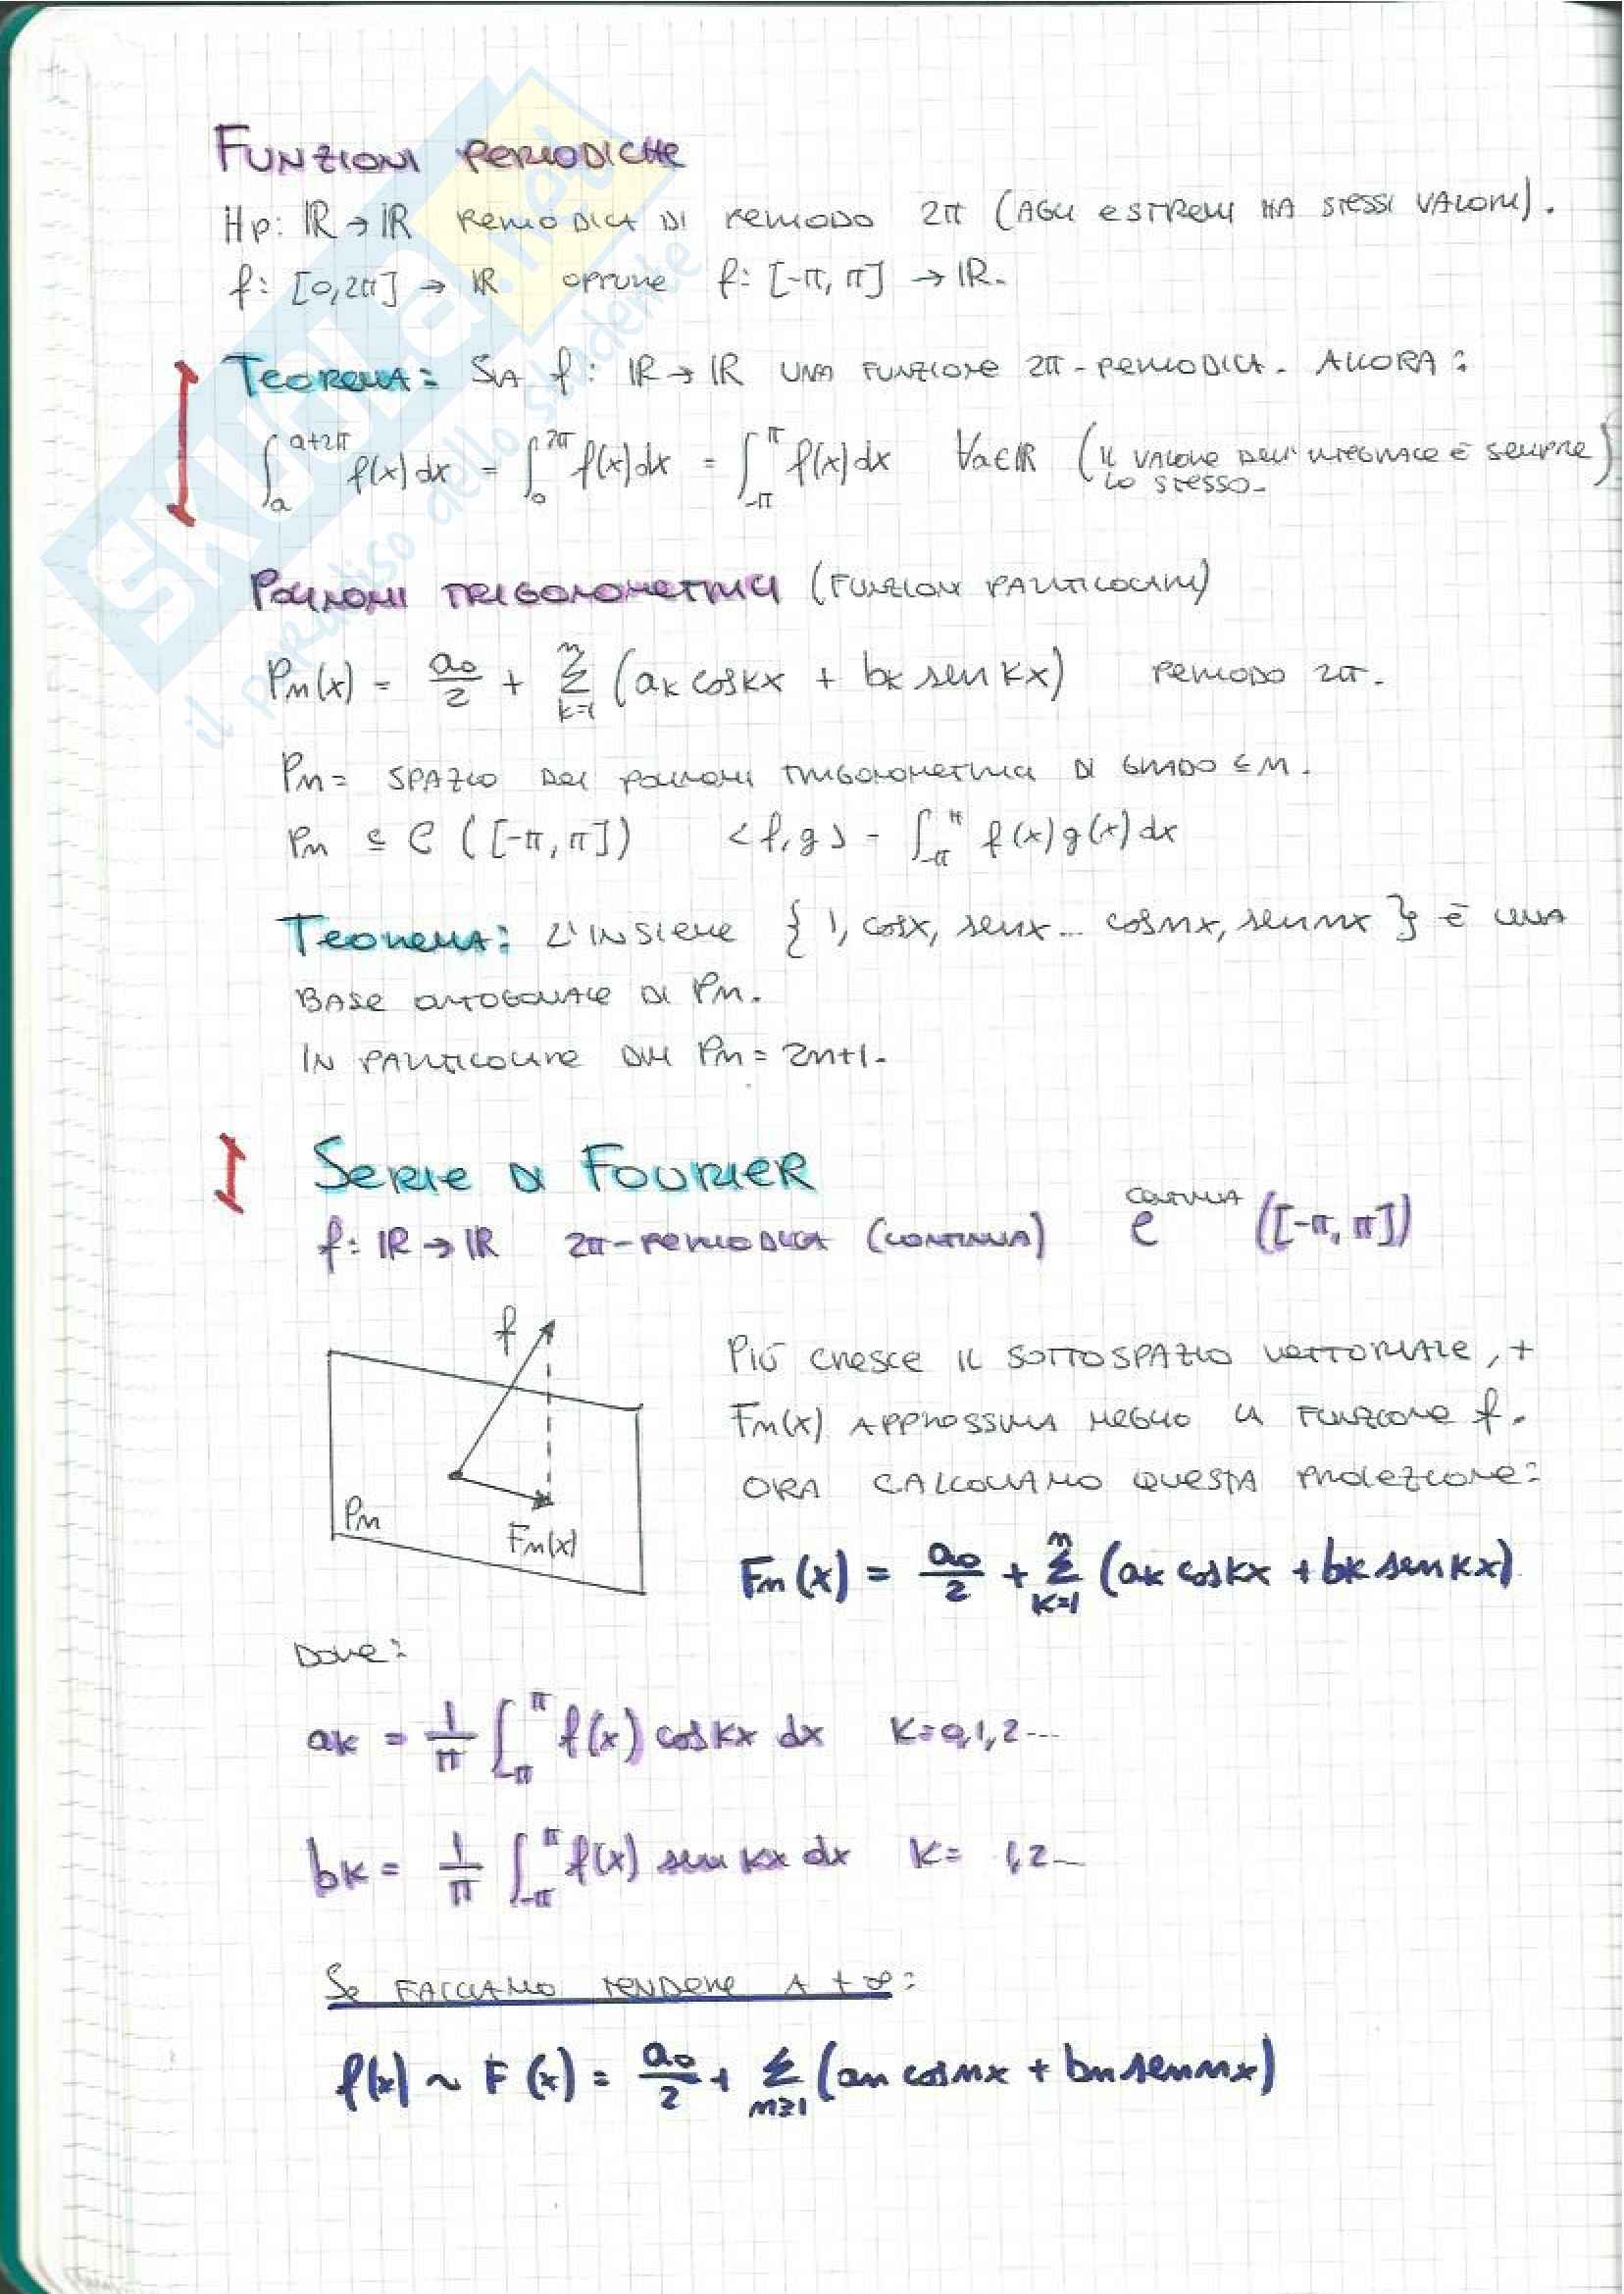 FUNZIONI PERIODICHE
Hp: ℝ→ℝ PERIODICA DI PERIODO 2π (AGLI ESTREMI HA STESSI VALORI).
f: [0,2π] → ℝ OPPURE f: [-π, π] → ℝ.
TEOREMA: SIA f: ℝ→ℝ UNA FUNZIONE 2π-PERIODICA. ALLORA:
∫_a^{a+2π} f(x)dx = ∫_0^{2π} f(x)dx = ∫_{-π}^{π} f(x)dx ∀a∈ℝ (IL VALORE DELL'INTEGRALE È SEMPRE
LO STESSO.)
POLINOMI TRIGONOMETRICI (FUNZIONI PARTICOLARI)
Pn(x) = a0/2 + Σ_{k=1}^{n} (ak cos kx + bk sen kx) PERIODO 2π.
Pn = SPAZIO DEI POLINOMI TRIGONOMETRICI DI GRADO ≤ n.
Pn ⊆ C ([-π, π]) <f,g> = ∫_{-π}^{π} f(x)g(x)dx
TEOREMA: L'INSIEME {1, cosx, senx... cosnx, sennx} È UNA
BASE ORTOGONALE DI Pn.
IN PARTICOLARE DIM Pn = 2n+1.
SERIE DI FOURIER
CONTINUA
f: ℝ→ℝ 2π-PERIODICA (CONTINUA) C ([-π, π])
f
Pn
Fn(x)
PIÙ CRESCE IL SOTTOSPAZIO VETTORIALE, +
Fn(x) APPROSSIMA MEGLIO LA FUNZIONE f.
ORA CALCOLIAMO QUESTA PROIEZIONE:
Fn(x) = a0/2 + Σ_{k=1}^{n} (ak cos kx + bk sen kx)
DOVE:
ak = 1/π ∫_{-π}^{π} f(x) cos kx dx k=0,1,2...
bk = 1/π ∫_{-π}^{π} f(x) sen kx dx k= 1,2...
SE FACCIAMO TENDERE A +∞:
f(x) ~ F(x) = a0/2 + Σ_{n≥1} (an cosnx + bn sennx)
SKUOLA.net
il paradiso dello studente